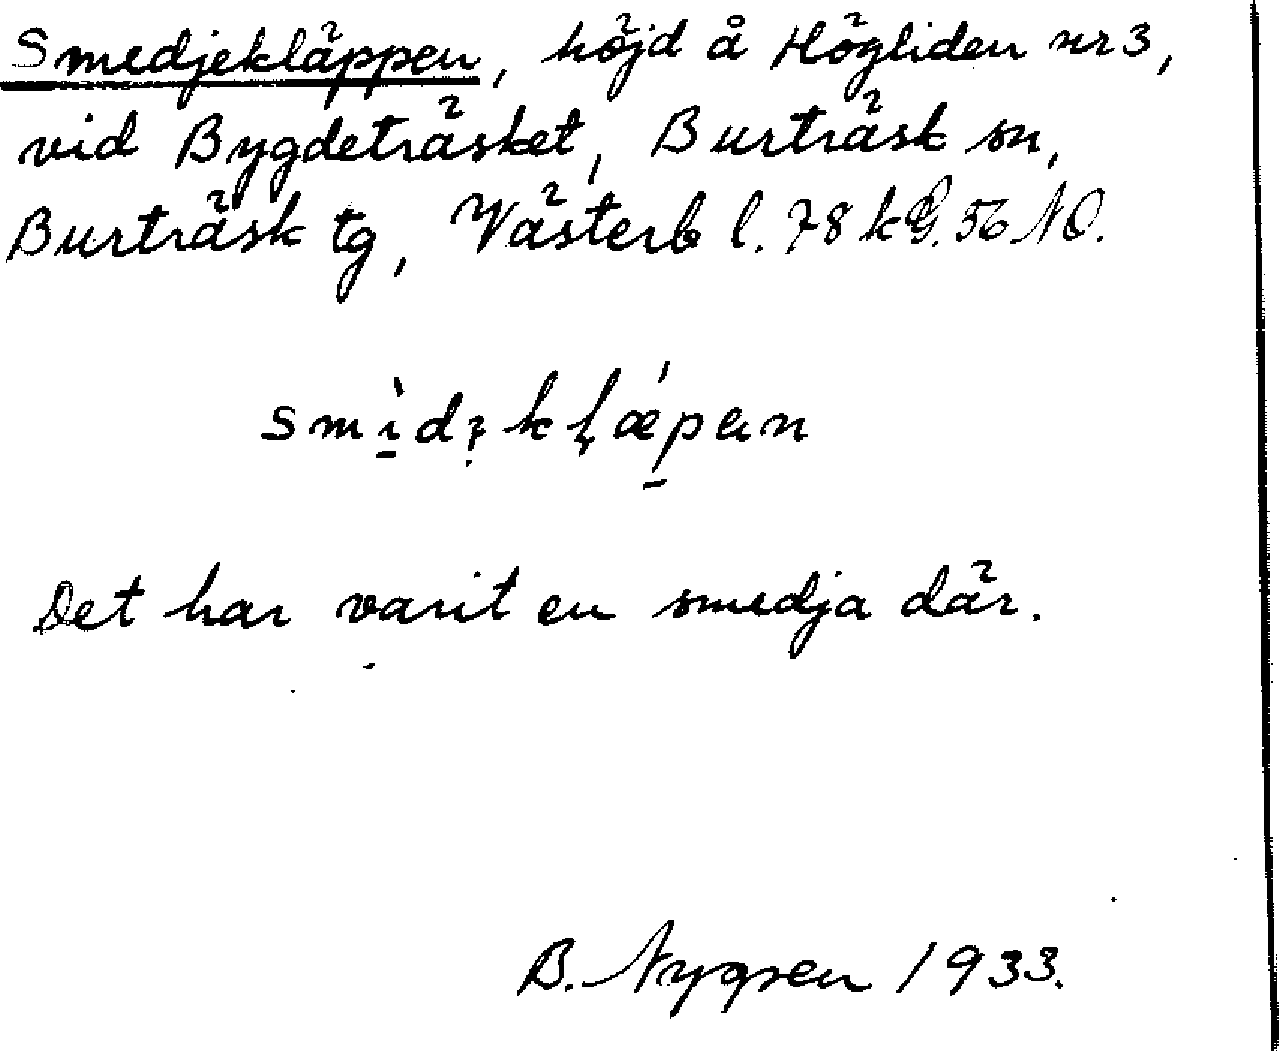 Smedjekläppen, höjd å Högliden nr 3,
vid Bygdeträsket, Burträsk sn,
Burträsk tg, Västerb l. 78 k G. 56 NO.
Det har varit en smedja där.
B. Nygren 1933.